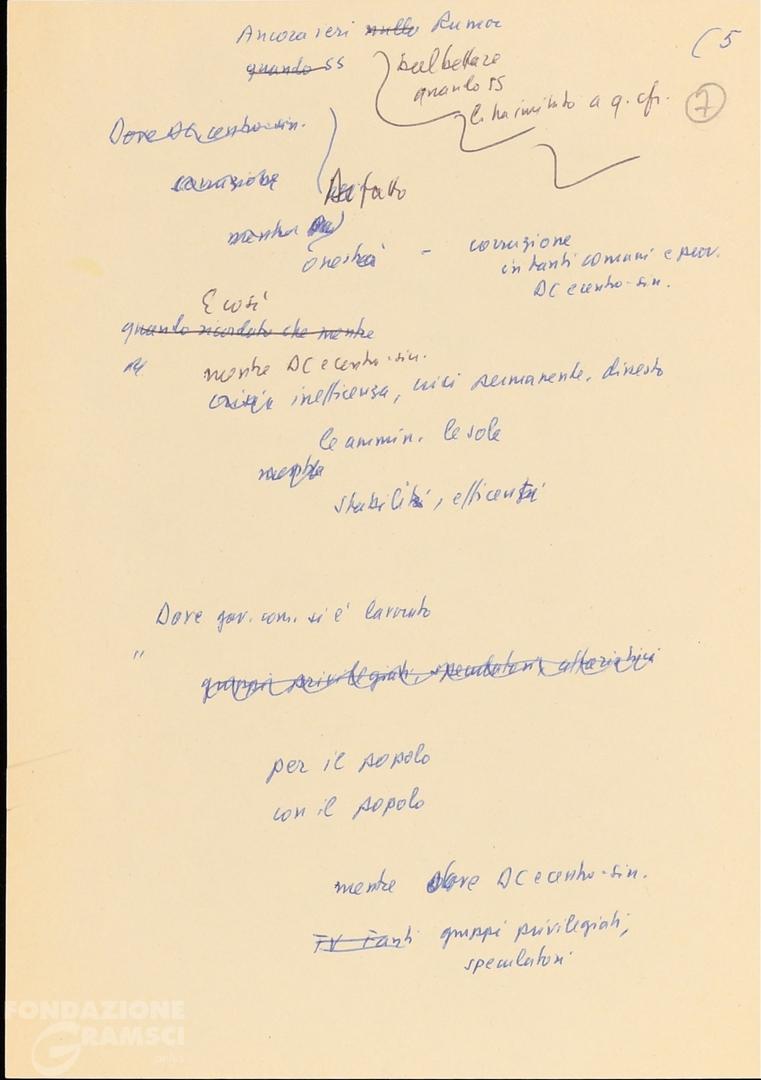 Ancora ieri nulla Rumor
(5
quando SS
balbettare
quando SS
l'ha invitato a q. cfr.
7
Dove DC centro-sin.
corruzione
Di fatto
mentre
onestà - corruzione
in tanti comuni e prov.
DC e centro-sin.
E così
quando ricordato che mentre
mentre DC e centro-sin.
crisi inefficenza, crisi permanente, dissesto
le ammin. le sole
mentre
stabilità, efficenti
Dove gov. com. si è lavorato
"
gruppi privilegiati, speculatori, affaristici
per il popolo
con il popolo
mentre dove DC e centro-sin.
Tanti gruppi privilegiati,
speculatori
FONDAZIONE
GRAMSCI
onlus